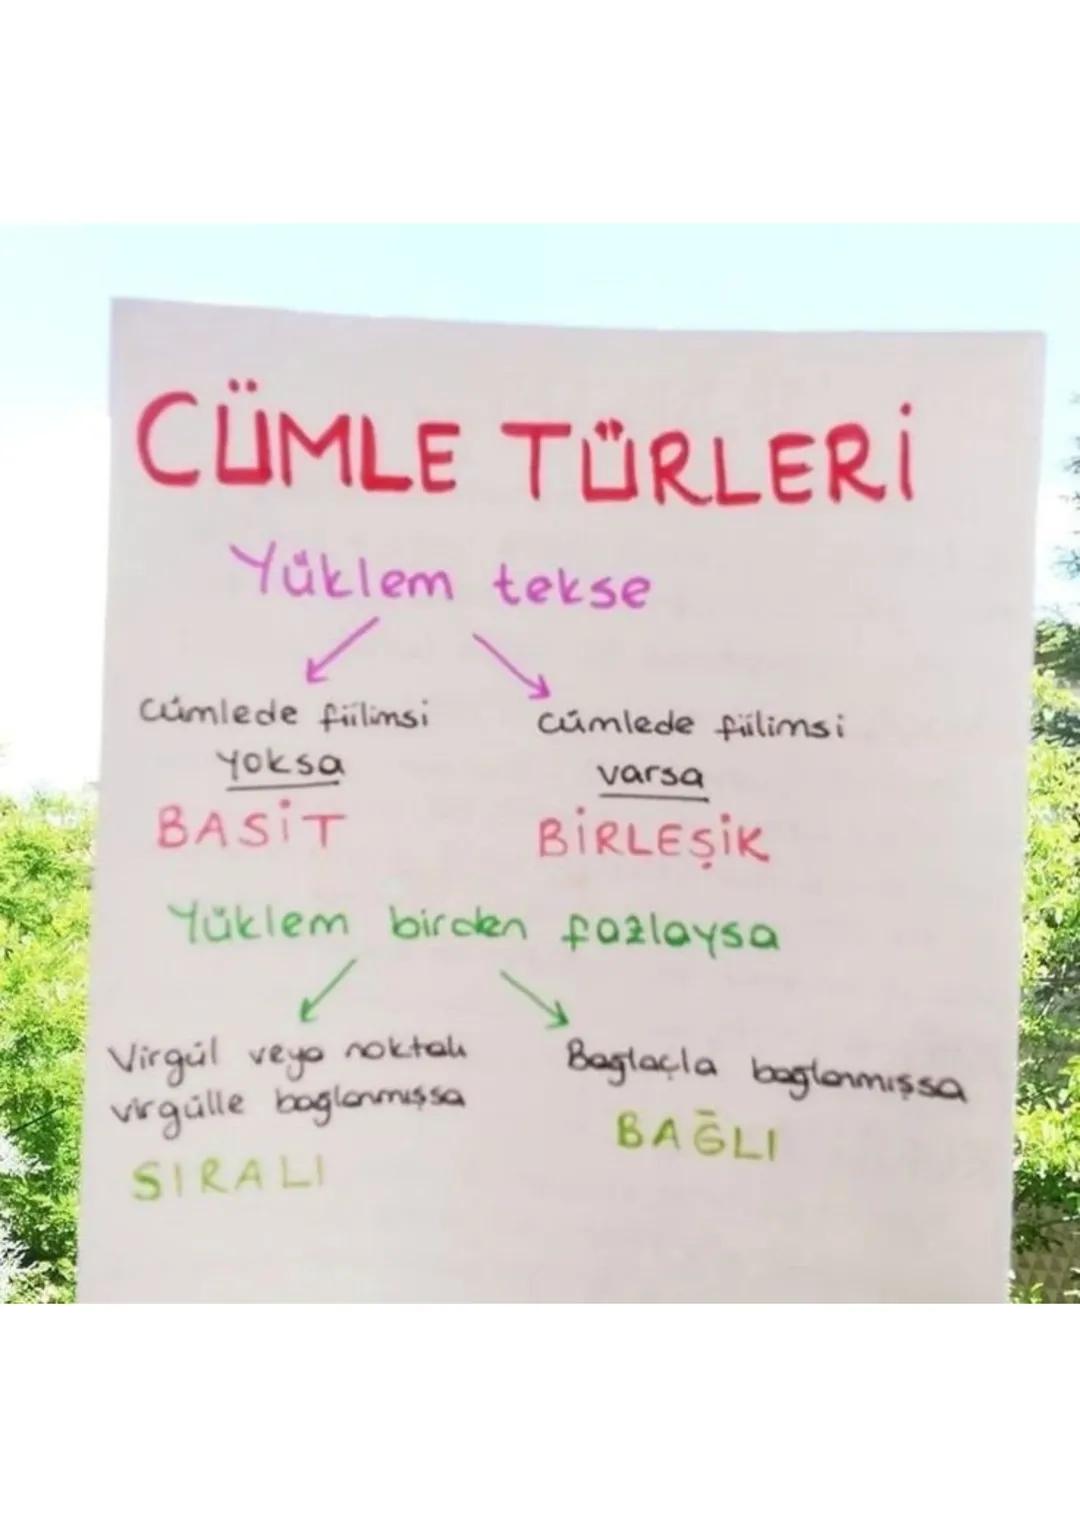 CÜMLE TÜRLERİ
Yüklem tekse
Cümlede fiilimsi
yoksa
BASİT
Cümlede fiilimsi
varsa
BİRLEŞİK
Yüklem birden fazlaysa
Virgül veya noktalı
virgülle bağlanmışsa
SIRALI
Bağlaçla bağlanmışsa
BAĞLI